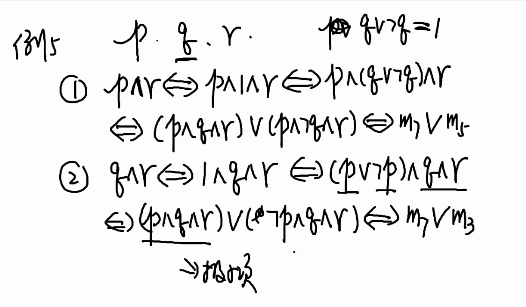 例5 p . q . r. p q∨¬q=1
① p∧r⇔p∧1∧r⇔p∧(q∨¬q)∧r
⇔(p∧q∧r)∨(p∧¬q∧r)⇔m₇∨m₅
② q∧r⇔1∧q∧r⇔(p∨¬p)∧q∧r
⇔(p∧q∧r)∨(¬p∧q∧r)⇔m₇∨m₃
→极小项